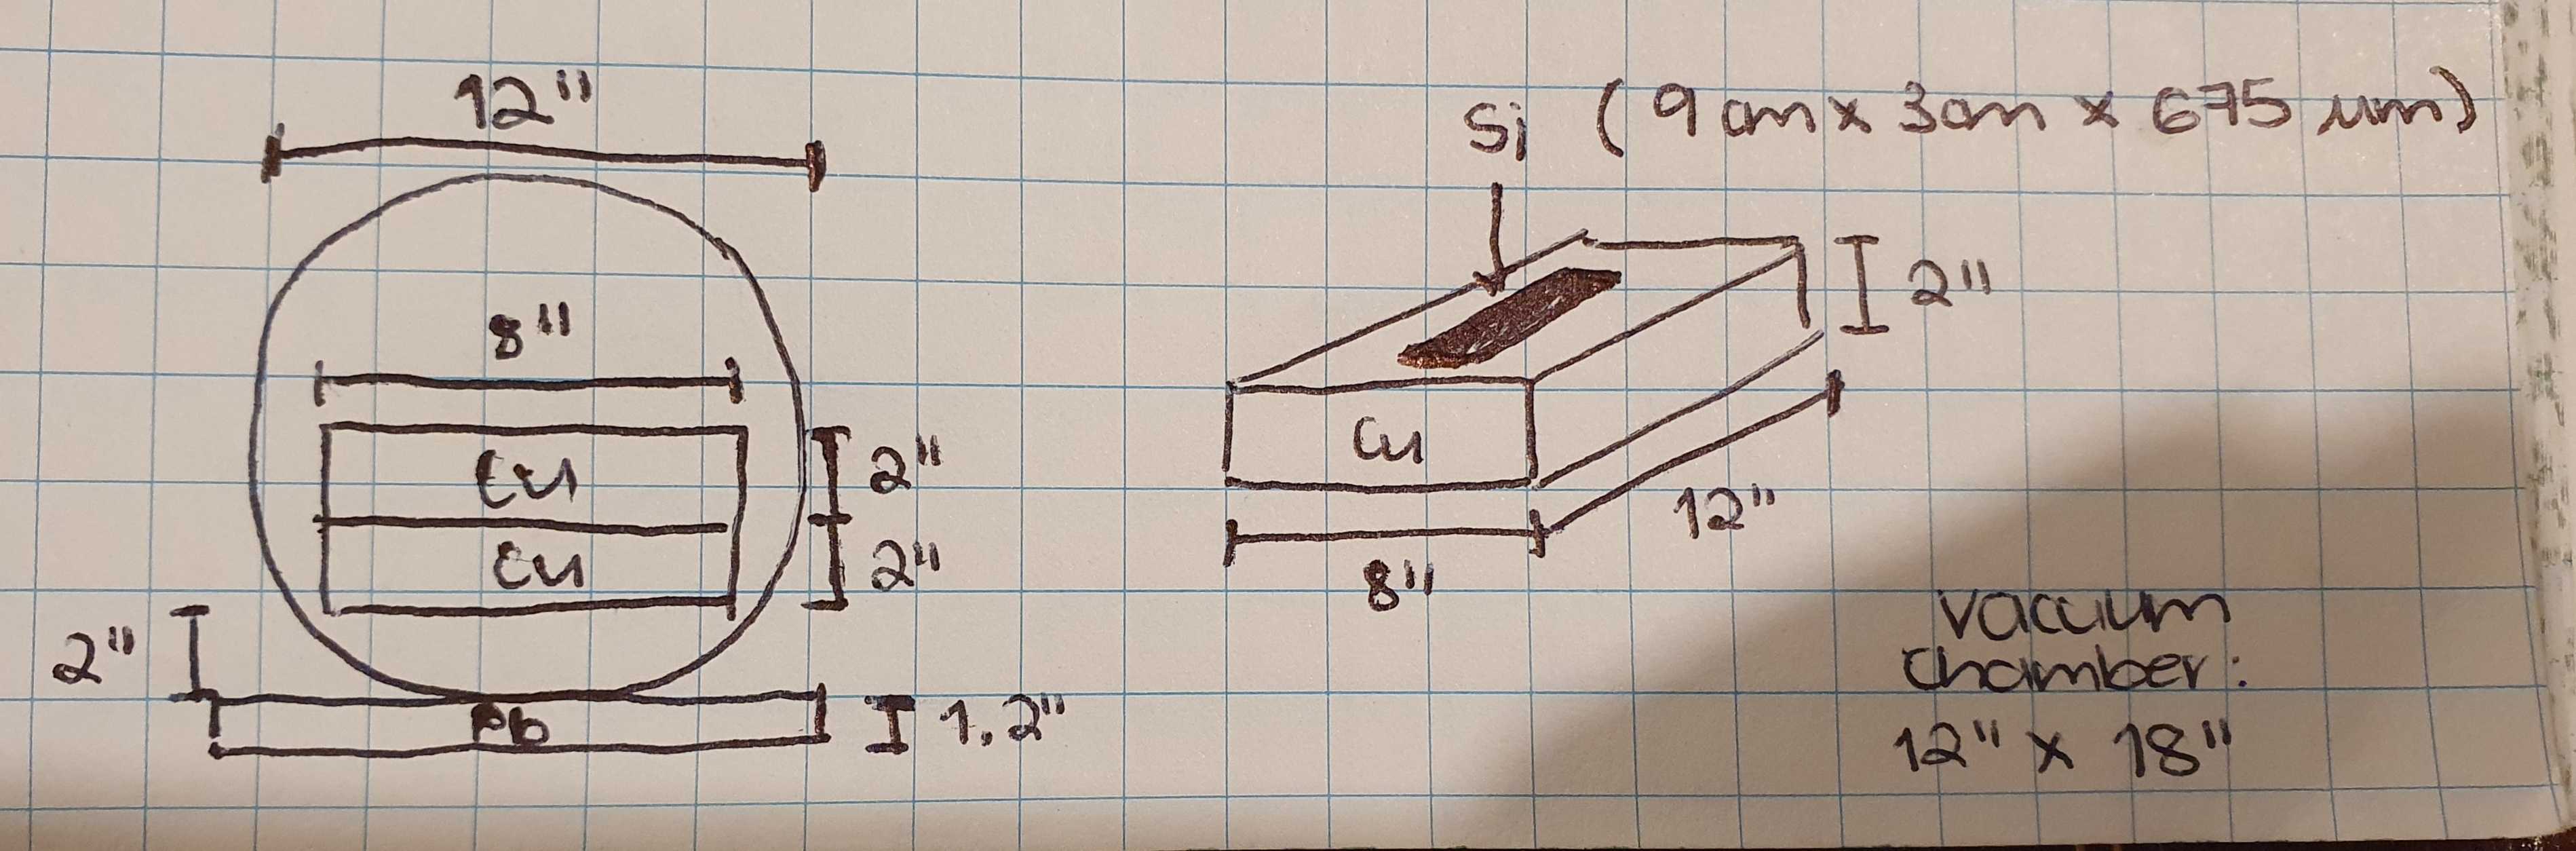 12"
8"
Cu
2"
Cu
2"
2"
Pb
1.2"
Si (9 cm x 3 cm x 675 um)
2"
Cu
12"
8"
vaccum
chamber:
12" x 18"